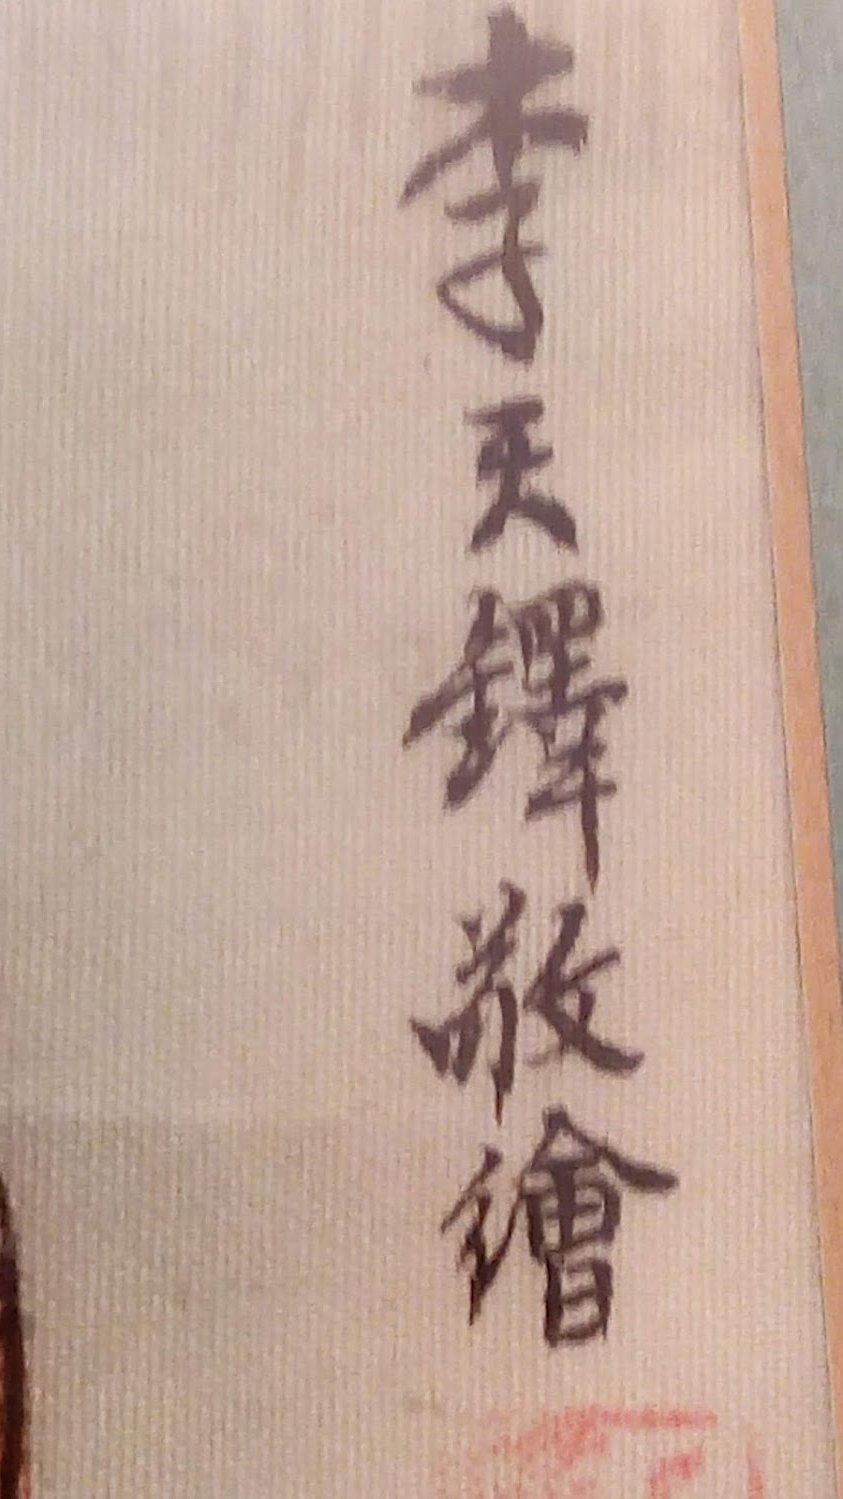 李天鐸敬繪